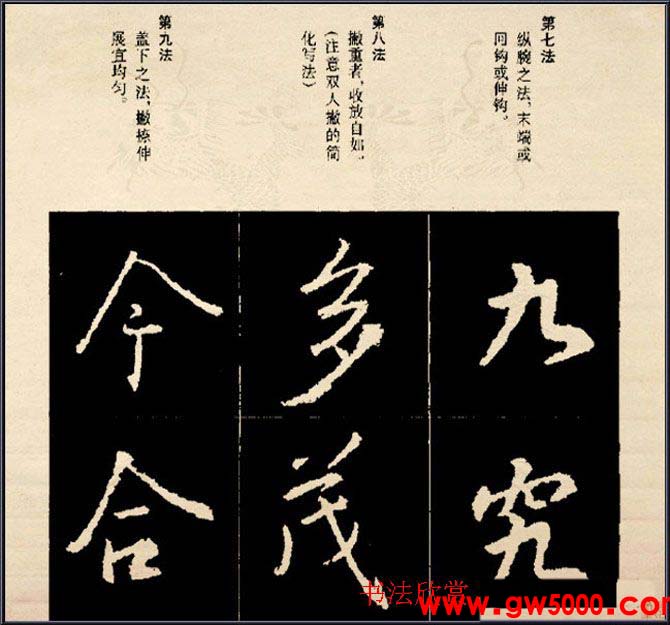 第七法
纵腕之法,末端或
回钩或伸钩。
第八法
撇重者,收放自如。
(注意双人撇的简
化写法)
第九法
盖下之法,撇捺伸
展宜均匀。
九
究
多
茂
今
合
书法欣赏
www.gw5000.com